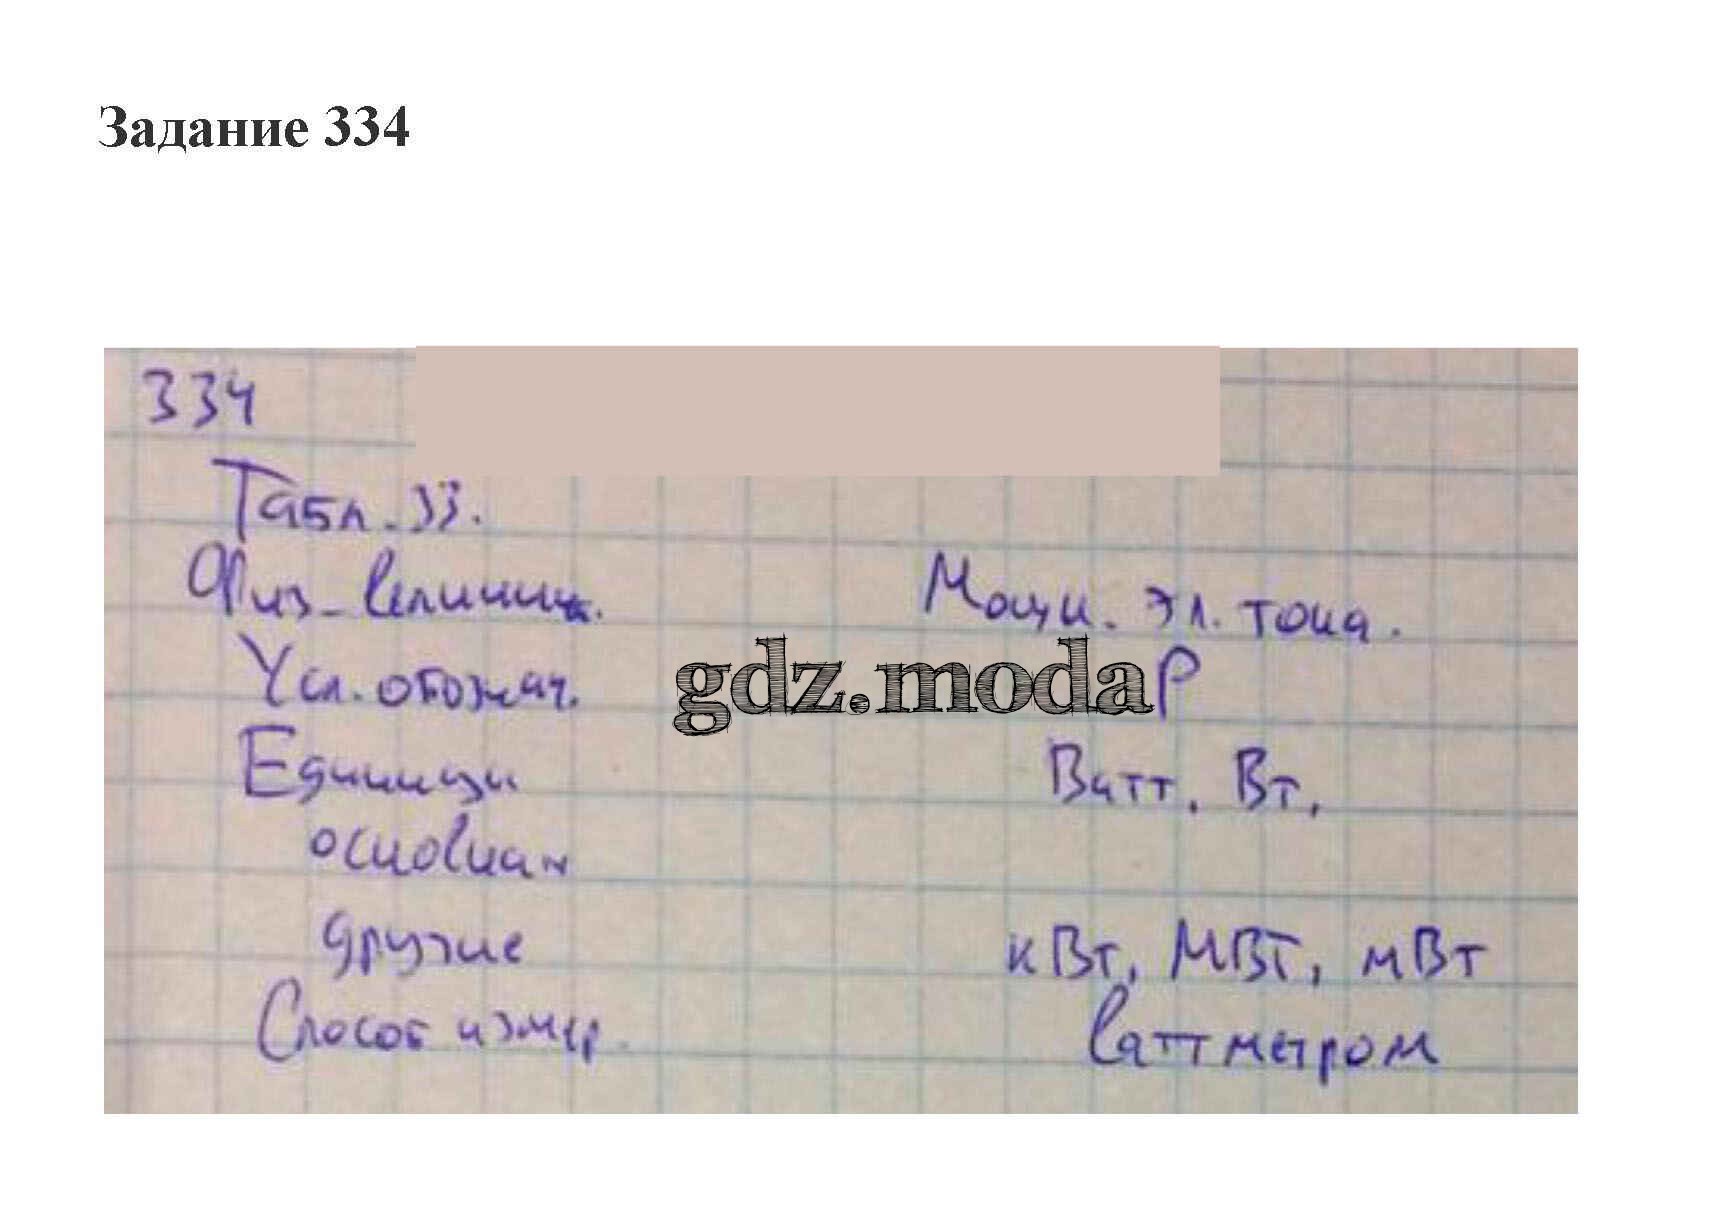 Задание 334
334
Табл. 33.
Физ. величина. Мощн. эл. тока.
Усл. обознач. gdz.moda P
Единицы Ватт. Вт.
основная
другие кВт, МВт, мВт
Способ измер. Ваттметром